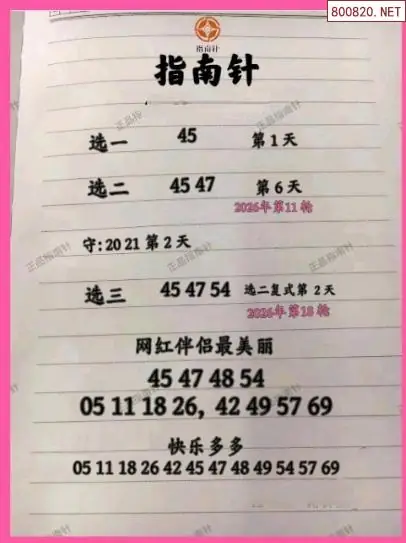 800820.NET
指南针
指南针
选一 45 第1天
选二 45 47 第6天
2026年第11轮
守:20 21 第2天
选三 45 47 54 选二复式第 2天
2026年第18轮
网红伴侣最美丽
45 47 48 54
05 11 18 26, 42 49 57 69
快乐多多
05 11 18 26 42 45 47 48 49 54 57 69
正品指南针
正品指南针
正品指南针
正品指南针